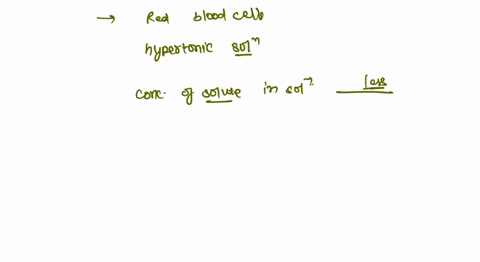 → Red blood cells
hypertonic solⁿ
conc. of solute in solⁿ less